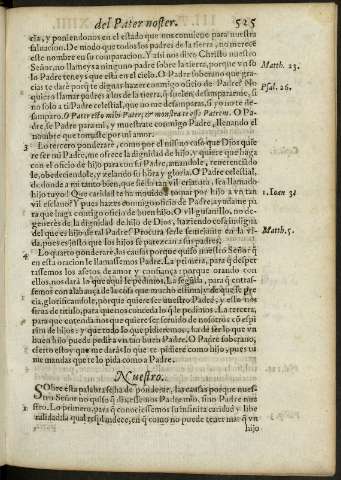 del Pater noster. 525
cia, y poniendonos en el estado que nos conuiene para nuestra
saluacion. De modo que todos los padres de la tierra, no merecē
este nombre en su comparacion. Y assi nos dixo Christo nuestro
Señor, no llameys a ninguno padre sobre la tierra, porque vn so Matth. 23.
lo Padre teneys que està en el cielo. O Padre soberano que gra-
cias te darè porq̃ te dignas hazer conmigo oficio de Padre? No
quiero llamar padres a los de la tierra, si suelen desampararme, si Psal. 26.
no solo a ti Padre celestial, que no me desamparas, si yo no te de-
samparo. O Pater esto mihi Pater, & monstra te esse Patrem. O Pa-
dre, se Padre para mi, y muestrate conmigo Padre, llenando el
nombre que tomaste por mi amor.
3 Lo tercero ponderarè, como por el mismo caso que Dios quie
re ser mi Padre, me ofrece la dignidad de hijo, y quiere que haga
con el oficio de hijo para con su Padre, amandole, reuerenciādo
le, obedeciendole, y zelando su hõra y gloria. O Padre celestial,
de donde a mi tanto bien, que siēdo tā vil criatura, sea llamado
hijo tuyo? Que caridad te ha mouido a tomar por hijo a vn tan 1. Ioan 3.
vil esclauo? Y pues hazes conmigo oficio de Padre, ayudame pa
ra que haga contigo oficio de buen hijo. O vil gusanillo, no de-
generes de la dignidad de hijo de Dios, haziendo cosa indigna
del que es hijo de tal Padre. Procura serle semejante en la vi- Matth. 5.
da, pues es justo que los hijos se parezcan a sus padres.
4 Lo quarto ponderarè, las causas porque quiso nuestro Señor q̃
en esta oracion le llamassemos Padre. La primera, para q̃ desper
tassemos los afetos de amor y confiança: porque orando con
ellos, nos darà lo que aqui le pedimos. La segūda, para q̃ entras-
semos con alabança de la cosa que mucho estima, y de que se pre
cia, glorificandole, porque quiere ser nuestro Padre: y esto nos
sirua de titulo, para que nos conceda lo q̃ le pedimos. La tercera,
para que entendamos que quiere ser seruido de nosotros cō espi
ritu de hijos: y que todo lo que pidieremos, ha de ser lo que vn
buen hijo puede pedir a vn tan buen Padre. O Padre soberano,
cierto estoy que me daràs lo que te pidiere como hijo, pues tu
me mandas que te lo pida como a Padre.
Nuestro.
SObre esta palabra se ha de ponderar, las causas porque nues-
tro Señor no quiso q̃ dixessemos Padre mio, sino Padre nue
stro. Lo primero, para q̃ conociessemos su infinita caridad y libe
ralidad: la qual resplandece, en q̃ como no puede tener mas q̃ vn
hijo